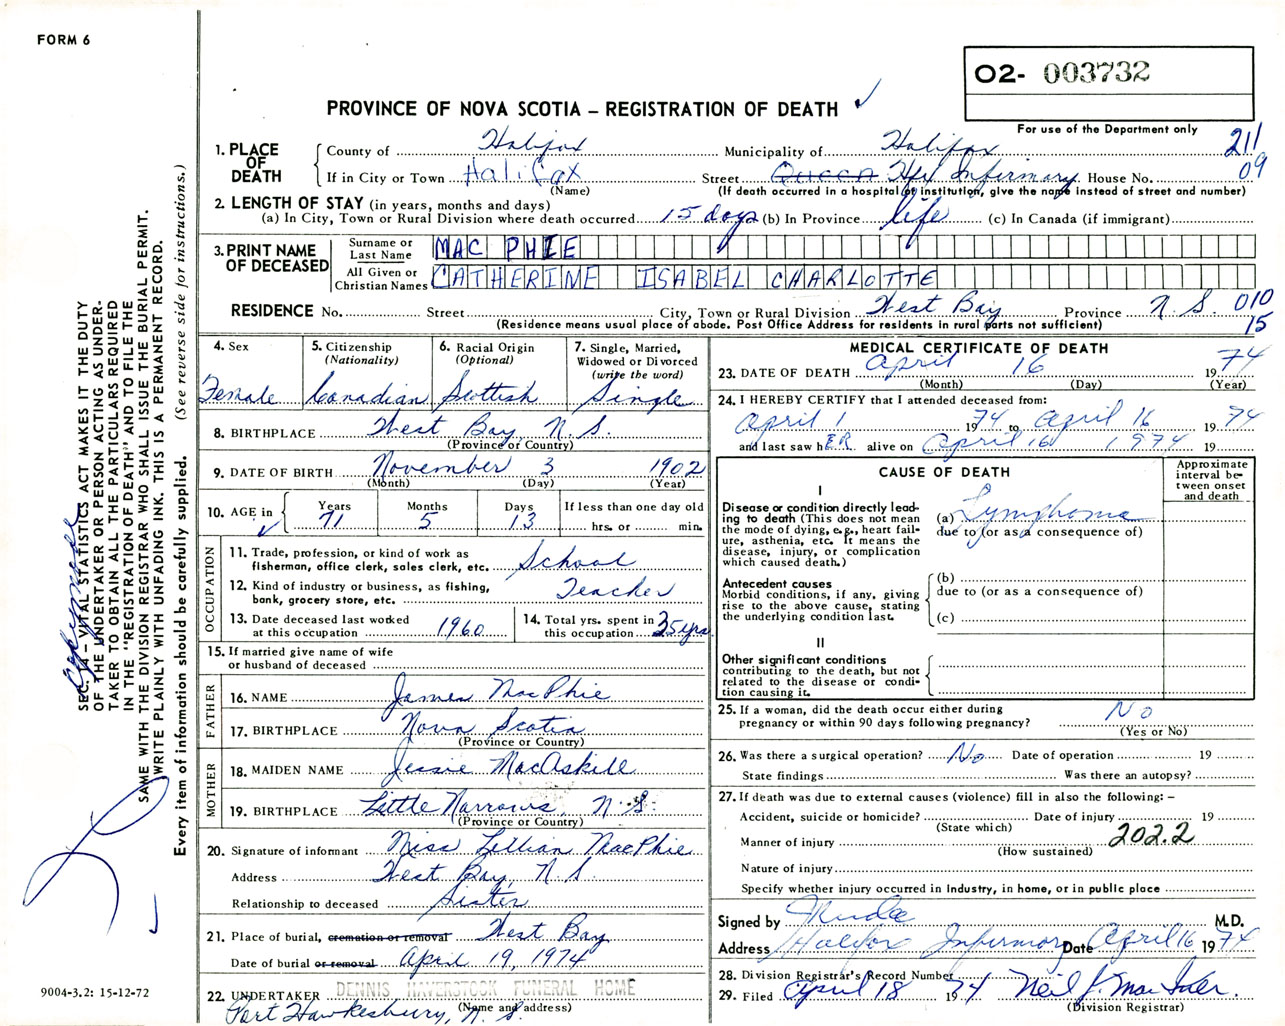 FORM 6
O2- 003732
For use of the Department only
PROVINCE OF NOVA SCOTIA – REGISTRATION OF DEATH
211
09
1. PLACE OF DEATH
County of Halifax Municipality of Halifax
If in City or Town Halifax Street Queen Hfx Infirmary House No.
(Name) (If death occurred in a hospital or institution, give the name instead of street and number)
2. LENGTH OF STAY (in years, months and days)
(a) In City, Town or Rural Division where death occurred 15 days (b) In Province life (c) In Canada (if immigrant)
3. PRINT NAME OF DECEASED
Surname or Last Name MAC PHIE
All Given or Christian Names CATHERINE ISABEL CHARLOTTE
RESIDENCE No. Street City, Town or Rural Division West Bay Province N. S. 010
(Residence means usual place of abode. Post Office Address for residents in rural parts not sufficient) 15
4. Sex Female
5. Citizenship (Nationality) Canadian
6. Racial Origin (Optional) Scottish
7. Single, Married, Widowed or Divorced (write the word) Single
8. BIRTHPLACE West Bay, N. S.
(Province or Country)
9. DATE OF BIRTH November 3 1902
(Month) (Day) (Year)
10. AGE in Years Months Days If less than one day old
71 5 13 hrs. or min.
OCCUPATION
11. Trade, profession, or kind of work as fisherman, office clerk, sales clerk, etc. School
12. Kind of industry or business, as fishing, bank, grocery store, etc. Teacher
13. Date deceased last worked at this occupation 1960
14. Total yrs. spent in this occupation 35 yrs
15. If married give name of wife or husband of deceased
FATHER
16. NAME James MacPhie
17. BIRTHPLACE Nova Scotia
(Province or Country)
MOTHER
18. MAIDEN NAME Jessie MacAskill
19. BIRTHPLACE Little Narrows, N. S.
(Province or Country)
20. Signature of informant Miss Lillian MacPhie
Address West Bay, N. S.
Relationship to deceased Sister
21. Place of burial, cremation or removal West Bay
Date of burial or removal April 19, 1974
22. UNDERTAKER DENNIS HAVERSTOCK FUNERAL HOME
(Name and address)
Port Hawkesbury, N. S.
MEDICAL CERTIFICATE OF DEATH
23. DATE OF DEATH April 16 1974
(Month) (Day) (Year)
24. I HEREBY CERTIFY that I attended deceased from:
April 1 1974 to April 16 1974
and last saw hER alive on April 16 1974 19
CAUSE OF DEATH
Approximate interval between onset and death
I
Disease or condition directly leading to death (This does not mean the mode of dying, e.g., heart failure, asthenia, etc. It means the disease, injury, or complication which caused death.)
(a) Lymphoma
due to (or as a consequence of)
Antecedent causes
Morbid conditions, if any, giving rise to the above cause, stating the underlying condition last.
(b)
due to (or as a consequence of)
(c)
II
Other significant conditions contributing to the death, but not related to the disease or condition causing it.
25. If a woman, did the death occur either during pregnancy or within 90 days following pregnancy? No
(Yes or No)
26. Was there a surgical operation? No Date of operation 19
State findings Was there an autopsy?
27. If death was due to external causes (violence) fill in also the following: –
Accident, suicide or homicide? Date of injury 19
(State which)
Manner of injury 202.2
(How sustained)
Nature of injury
Specify whether injury occurred in Industry, in home, or in public place
Signed by M.D.
Address Halifax Infirmary Date April 16 1974
28. Division Registrar's Record Number
29. Filed April 18 1974 Neil J.
(Division Registrar)
SEC. 14 – VITAL STATISTICS ACT MAKES IT THE DUTY
OF THE UNDERTAKER OR PERSON ACTING AS UNDER-
TAKER TO OBTAIN ALL THE PARTICULARS REQUIRED
IN THE "REGISTRATION OF DEATH" AND TO FILE THE
SAME WITH THE DIVISION REGISTRAR WHO SHALL ISSUE THE BURIAL PERMIT.
WRITE PLAINLY WITH UNFADING INK. THIS IS A PERMANENT RECORD.
Every item of information should be carefully supplied. (See reverse side for instructions.)
9004-3.2: 15-12-72